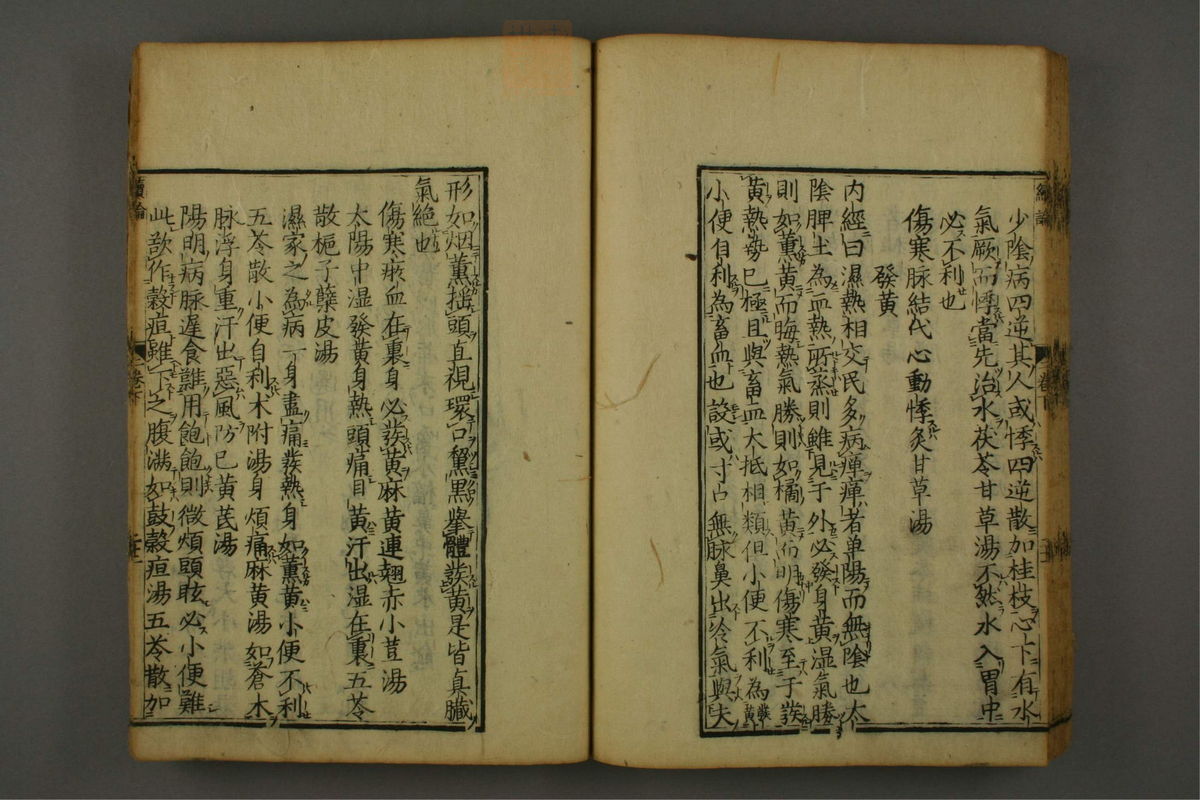 少陰病四逆其人或悸四逆散加桂枝心下有水
氣厥而悸當先治水茯苓甘草湯不然水入胃中
必不利也
傷寒脉結代心動悸炙甘草湯
發黄
内經曰濕熱相交民多病癉癉者单陽而無陰也太
陰脾土為血熱所蒸則雖見于外必發身黄湿氣勝
則如薫黄而晦熱氣勝則如橘黄而明傷寒至于発
黄熱勢已極且與畜血大抵相類但小便不利為發黄
小便自利為畜血也設或寸口無脉鼻出冷氣與夫
形如烟薫揺頭直視環口黧黒挙體発黄是皆真臓
氣絶也
傷寒瘀血在裏身必発黄麻黄連翹赤小荳湯
太陽中湿發黄身熱頭痛目黄汗出湿在裏五苓
散梔子蘗皮湯
濕家之為病一身盡痛発熱身如薫黄小便不利
五苓散小便自利木附湯身煩痛麻黄湯如蒼木
脉浮身重汗出惡風防已黄芪湯
陽明病脉遲食難用飽飽則微煩頭眩必小便難
此欲作穀疸雖下之腹満如鼓穀疸湯五苓散加